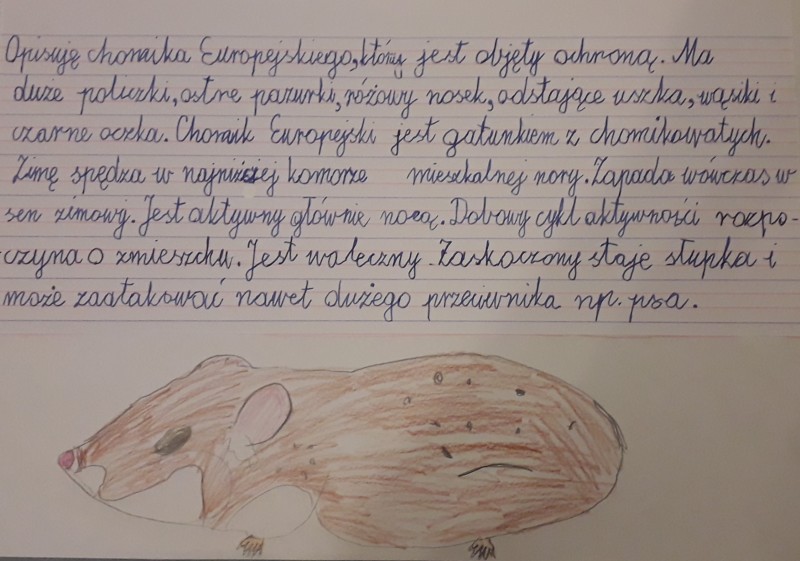 Opisuję chomika Europejskiego, który jest objęty ochroną. Ma
duże policzki, ostre pazurki, różowy nosek, odstające uszka, wąsiki i
czarne oczka. Chomik Europejski jest gatunkiem z chomikowatych.
Zimę spędza w najniższej komorze mieszkalnej nory. Zapada wówczas w
sen zimowy. Jest aktywny głównie nocą. Dobowy cykl aktywności rozpo-
czyna o zmieszchu. Jest waleczny. Zaskoczony staję słupka i
może zaatakować nawet dużego przeciwnika np. psa.